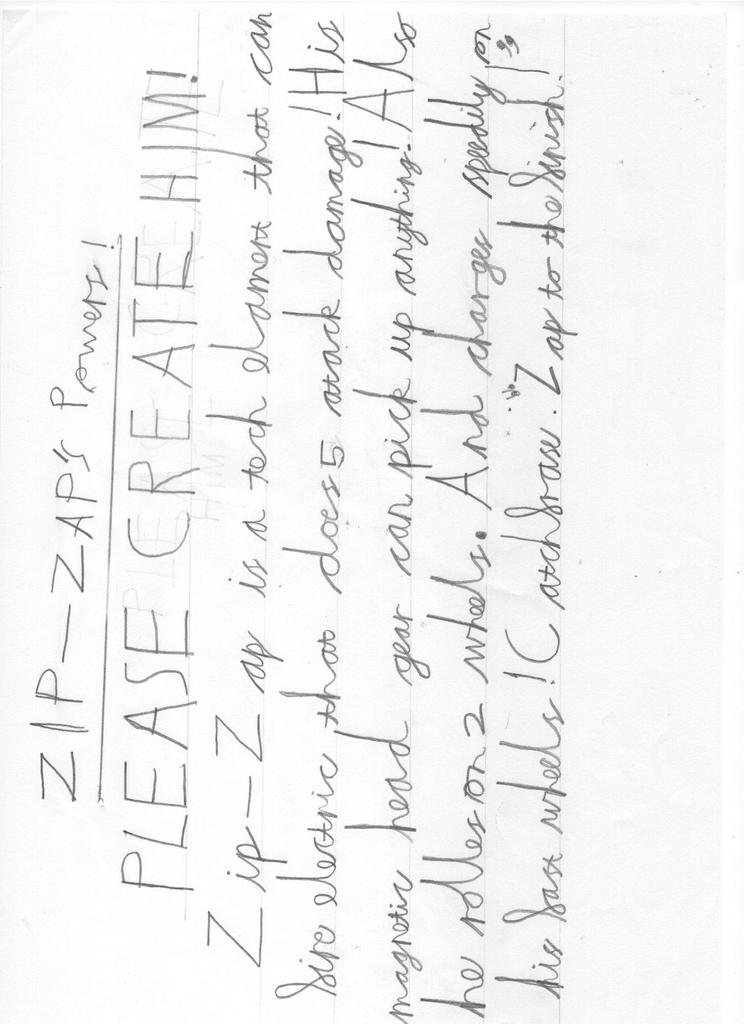 ZIP-ZAP'S Powers!
PLEASE CREATE HIM!
Zip-Zap is a tech elament that can
fire electric that does 5 atack damage! His
magnetic head gear can pick up anything! Also
he rolles on 2 wheels. And charges speedily on
his fast wheels! Catchfrase. "Zap to the finish!"